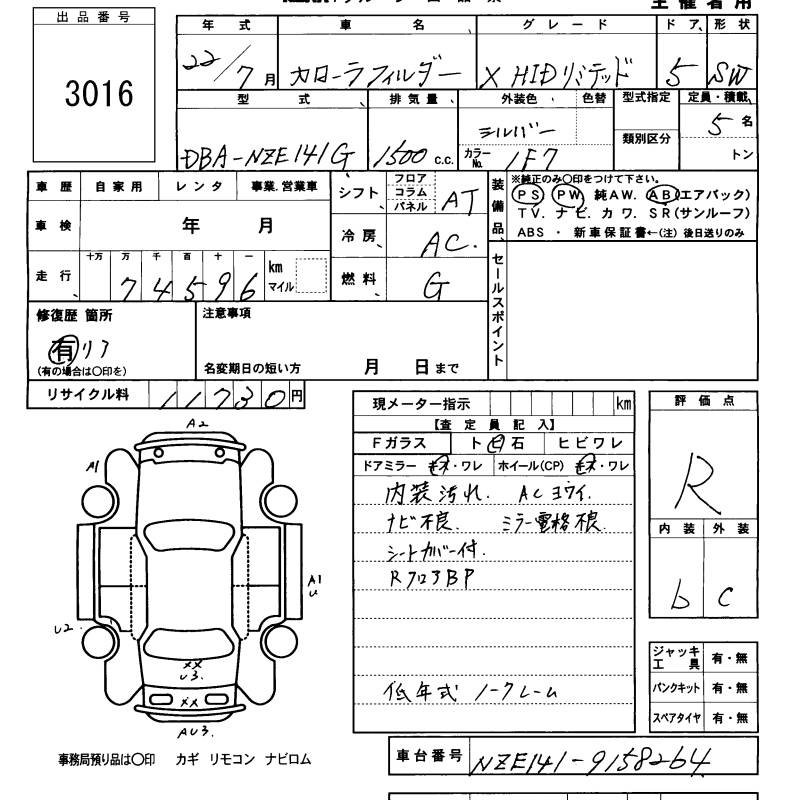 出品番号
3016
年式 車名 グレード ドア 形状
22/7月 カローラフィルダー X HIDリミテッド 5 SW
型式 排気量 外装色 色替 型式指定 定員・積載
DBA-NZE141G 1500 c.c. シルバー カラーNo. 1F7 類別区分 5名 トン
車歴 自家用 レンタ 事業.営業車
車検 年 月
走行 十万 万 千 百 十 一 km マイル
74596
シフト フロア コラム パネル AT
冷房 AC.
燃料 G
装備品
※純正のみ〇印をつけて下さい。
PS PW 純AW. AB(エアバック)
TV. ナビ. カワ. SR(サンルーフ)
ABS ・ 新車保証書←(注) 後日送りのみ
セールスポイント
修復歴 箇所
有 リア
(有の場合は〇印を)
注意事項
名変期日の短い方 月 日まで
リサイクル料 11730円
現メーター指示 km
【査定員記入】
Fガラス ト日石 ヒビワレ
ドアミラー ・ワレ ホイール(CP) ・ワレ
内装汚れ. ACヨワイ.
ナビ不良. ミラー電格不良.
シートカバー付.
RフロアBP
低年式 ノークレーム
評価点
R
内装 外装
b c
ジャッキ 工具 有・無
パンクキット 有・無
スペアタイヤ 有・無
A2
A1
A1
U
U2
XX
U3.
XX
AU3.
事務局預り品は〇印 カギ リモコン ナビロム
車台番号 NZE141-9158264